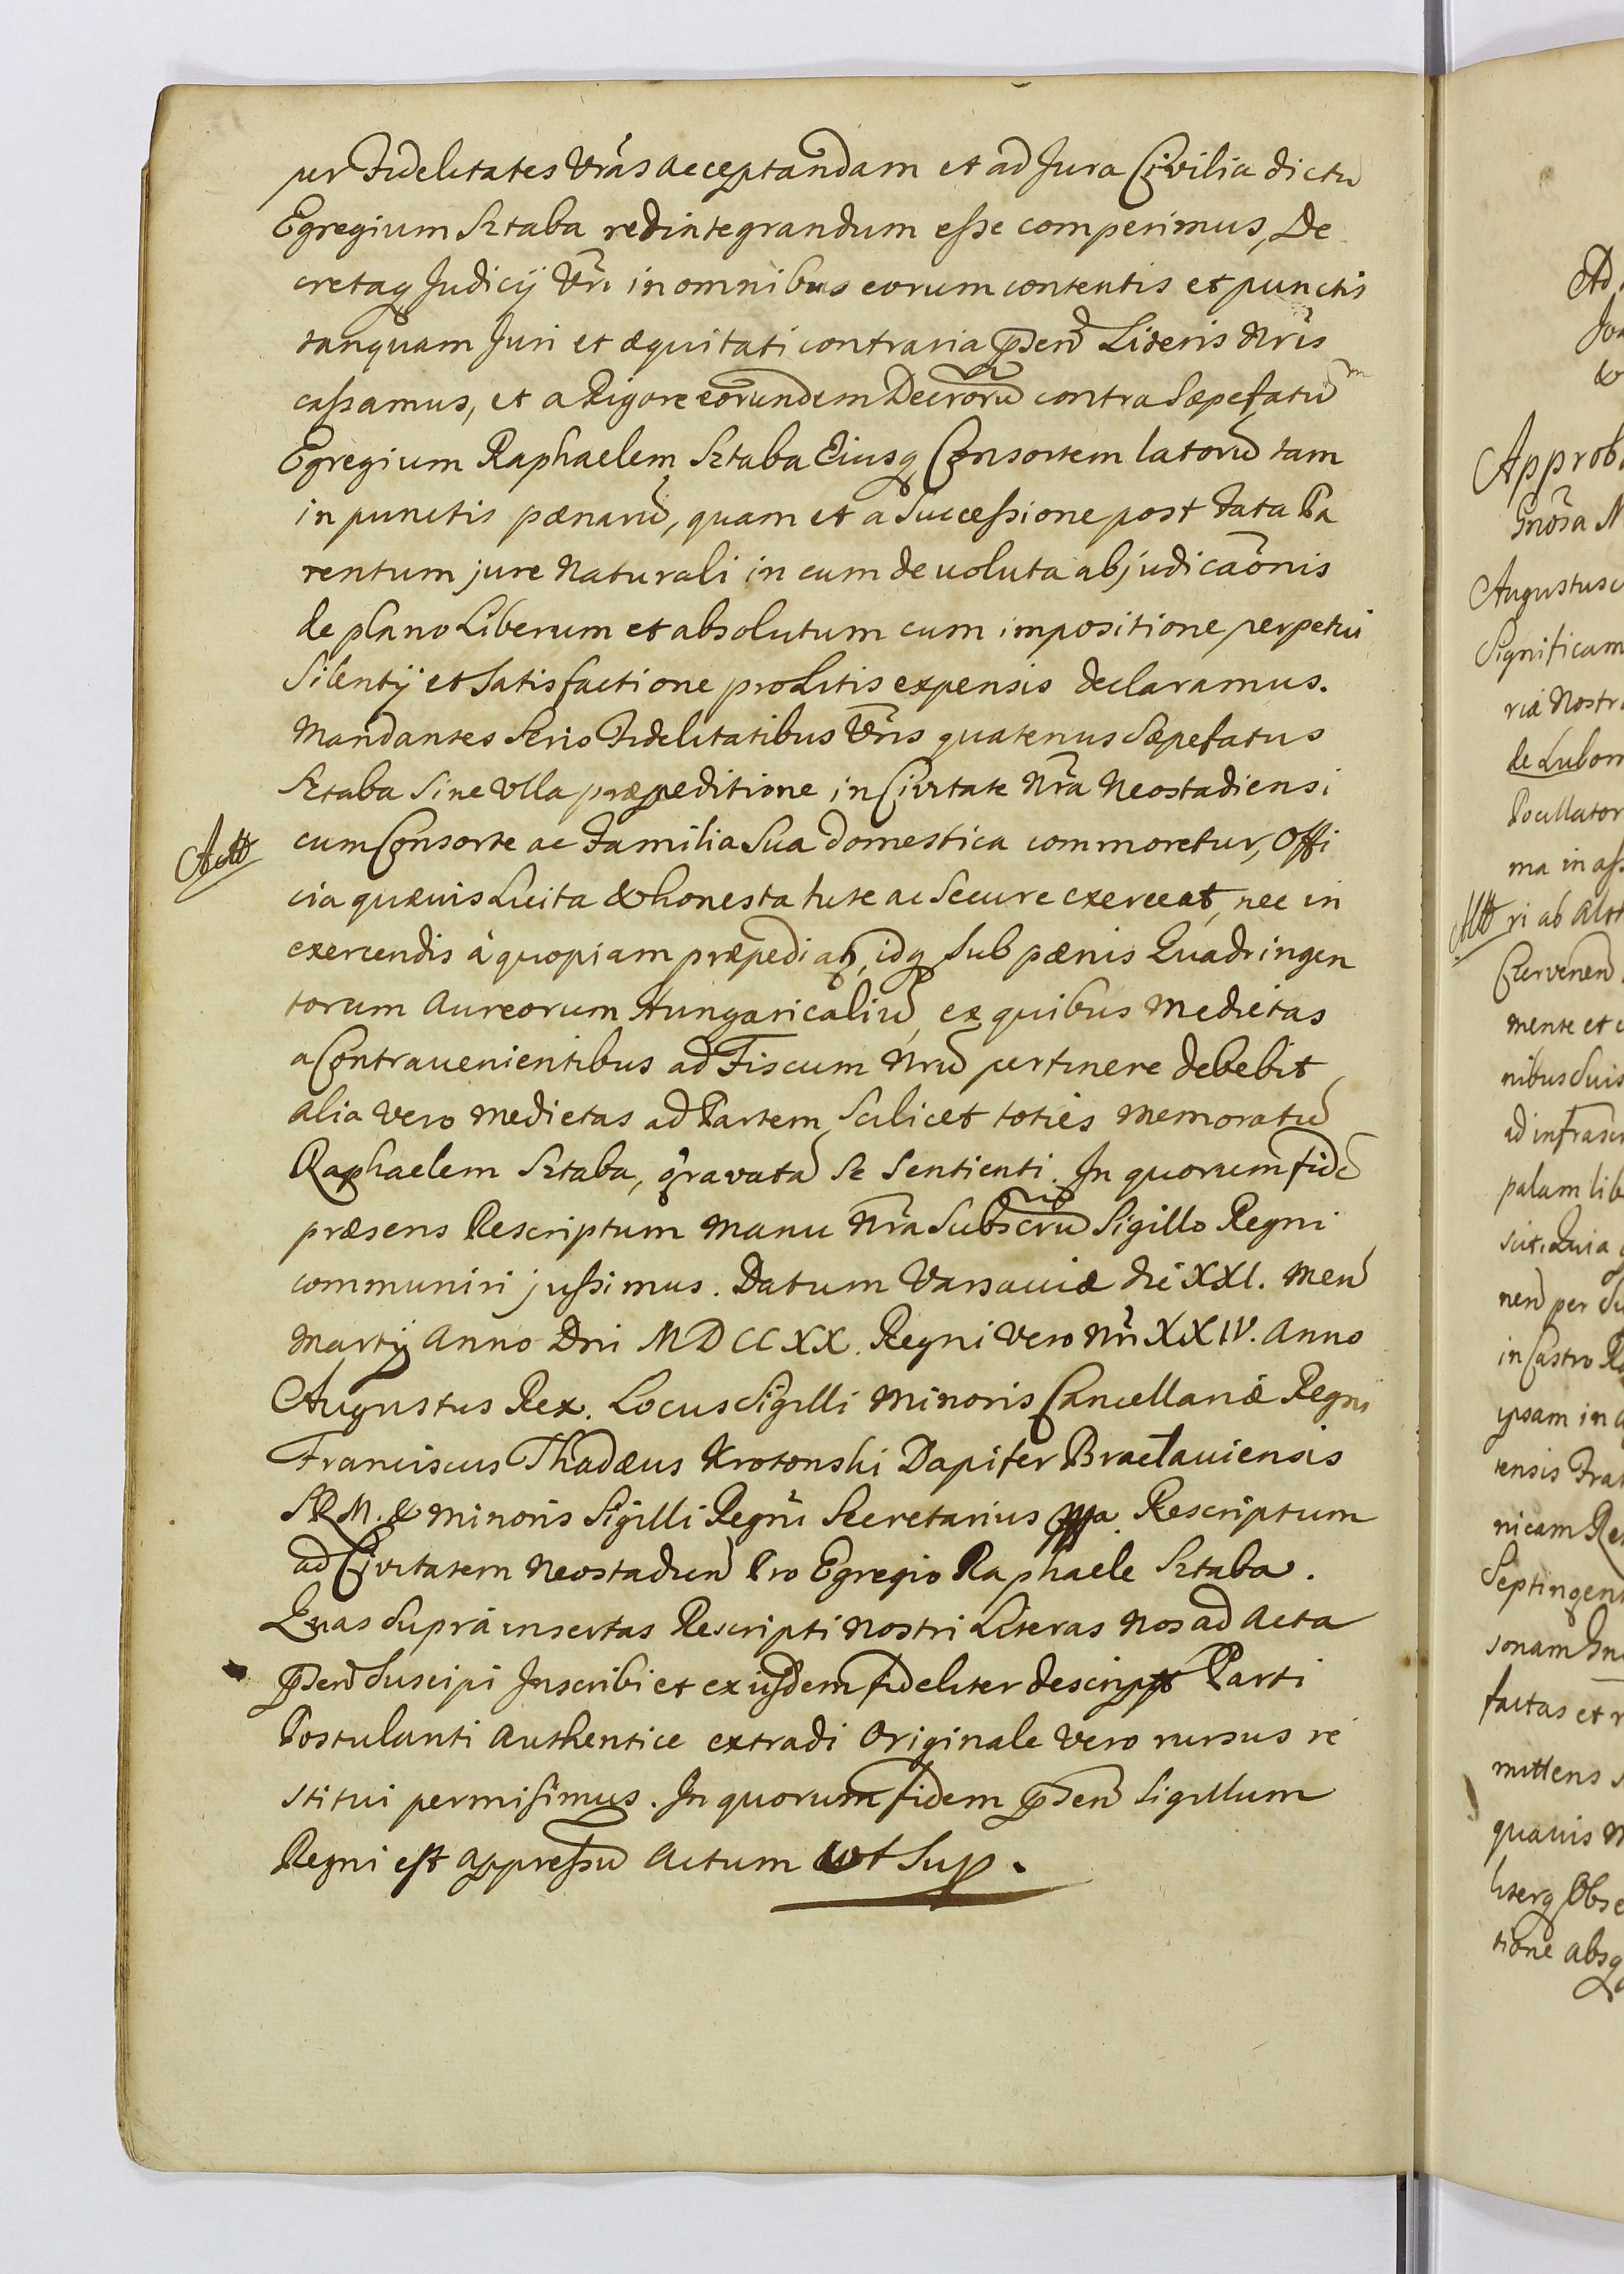 per Fidelitates Vrãs acceptandam et ad Jura Civilia dictũ
Egregium Sztaba redintegrandum eſse comperimus, De
cretaq Judicij Vrĩ in omnibus eorum contentis et punctis
tanquam Juri et æquitati contraria pñ Literis Nrĩs
caſsamus, et a Rigore eorundem Decrorũ contra Sæpefatũm
Egregium Raphaelem Sztaba Eiusq Consortem latorũ tam
in punctis pænarũ, quam et a Succeſsione post Fata Pa
rentum jure Naturali in eum deuoluta abjudicaõnis
de plano Liberum et absolutum cum impositione perpetui
Silentij et Satisfactione pro Litis expensis declaramus.
Mandantes Serio Fidelitatibus Vrĩs quatenus Sæpefatus
Sztaba Sine Vlla præpeditione in Civitate Nrã Neostadiensi
Actt
cum Consorte ac Familia Sua domestica commoretur, Offi
cia quævis Licita & honesta tute ac Secure exerceat, nec in
exercendis à quopiam præpediat, idq Sub pænis Quadringen
torum Aureorum Hungaricaliũ, ex quibus Medietas
a Contrauenientibus ad Fiscum Nrũ pertinere debebit
alia vero Medietas ad Partem, Scilicet toties memoratũ
Raphaelem Sztaba, gravatã Se Sentienti. In quorum fidẽ
præsens Rescriptum Manu Nrã Subscrũ Sigillo Regni
communiri juſsimus. Datum Varsaviæ die XXI. Men
Martij Anno Dni MDCCXX. Regni Vero Nrĩ XXIV. Anno
Augustus Rex. Locus Sigilli Minoris Cancellariæ Regni
Franciscus Thadæus Krotonski Dapifer Braclauiensis
SRM. & Minoris Sigilli Regni Secretarius mpa Rescriptum
ad Civitatem Neostadien Pro Egregio Raphaele Sztaba.
Quas Suprà insertas Rescripti Nostri Literas Nos ad Acta
pñ Suscipi Inscribi et ex iisdem fideliter descript Parti
Postulanti Authentice extradi Originale Vero rursus re
stitui permisimus. In quorum fidem pñ Sigillum
Regni est appreſsũ Actum ut Sup.
Approb
Augustus
Significam
riæ Nostr
de Lubom
Pocillator
mente et
nibus Suis
ad infrascr
palam lib
nen per Su
in Castro
ipsam in
tensis Frat
nicam Re
Septingent
factas et r
mittens
quavis
tione absq